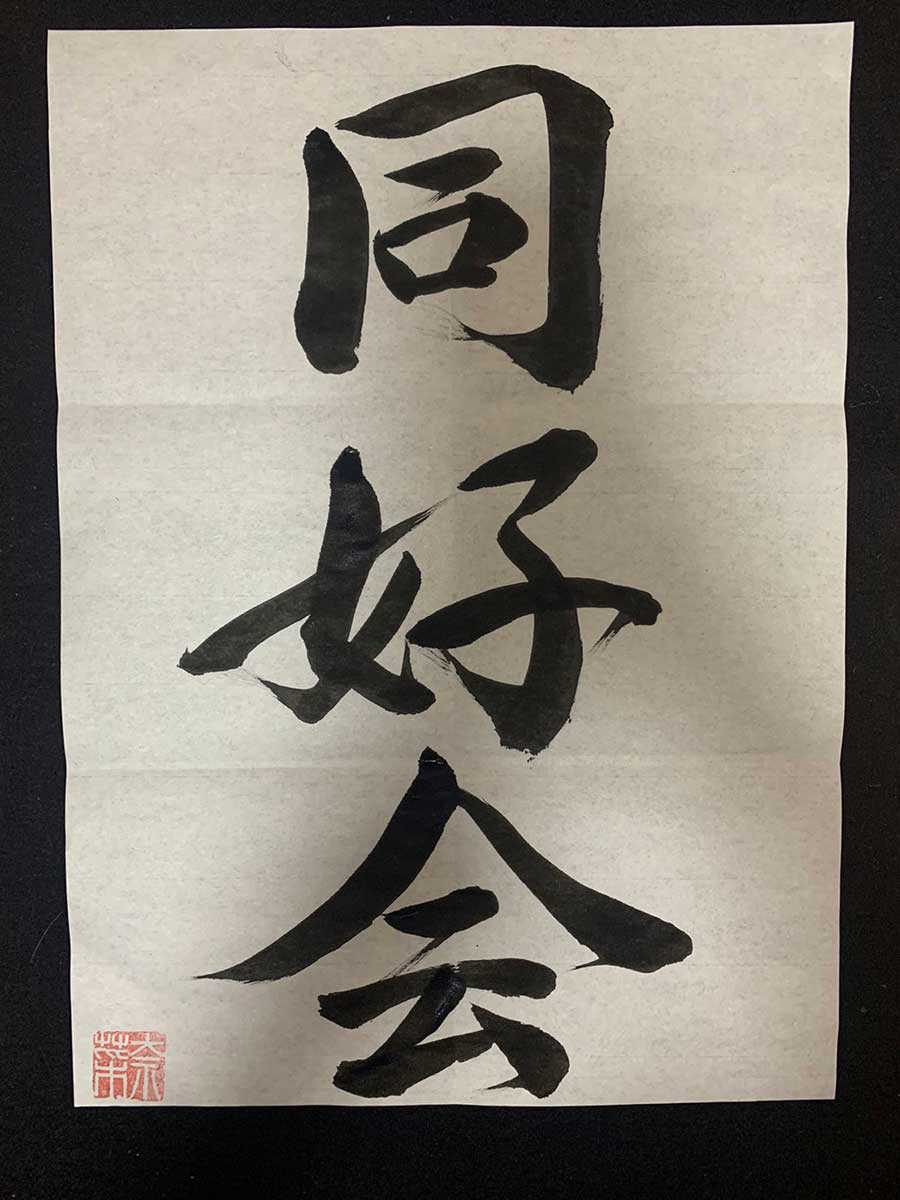 同好会